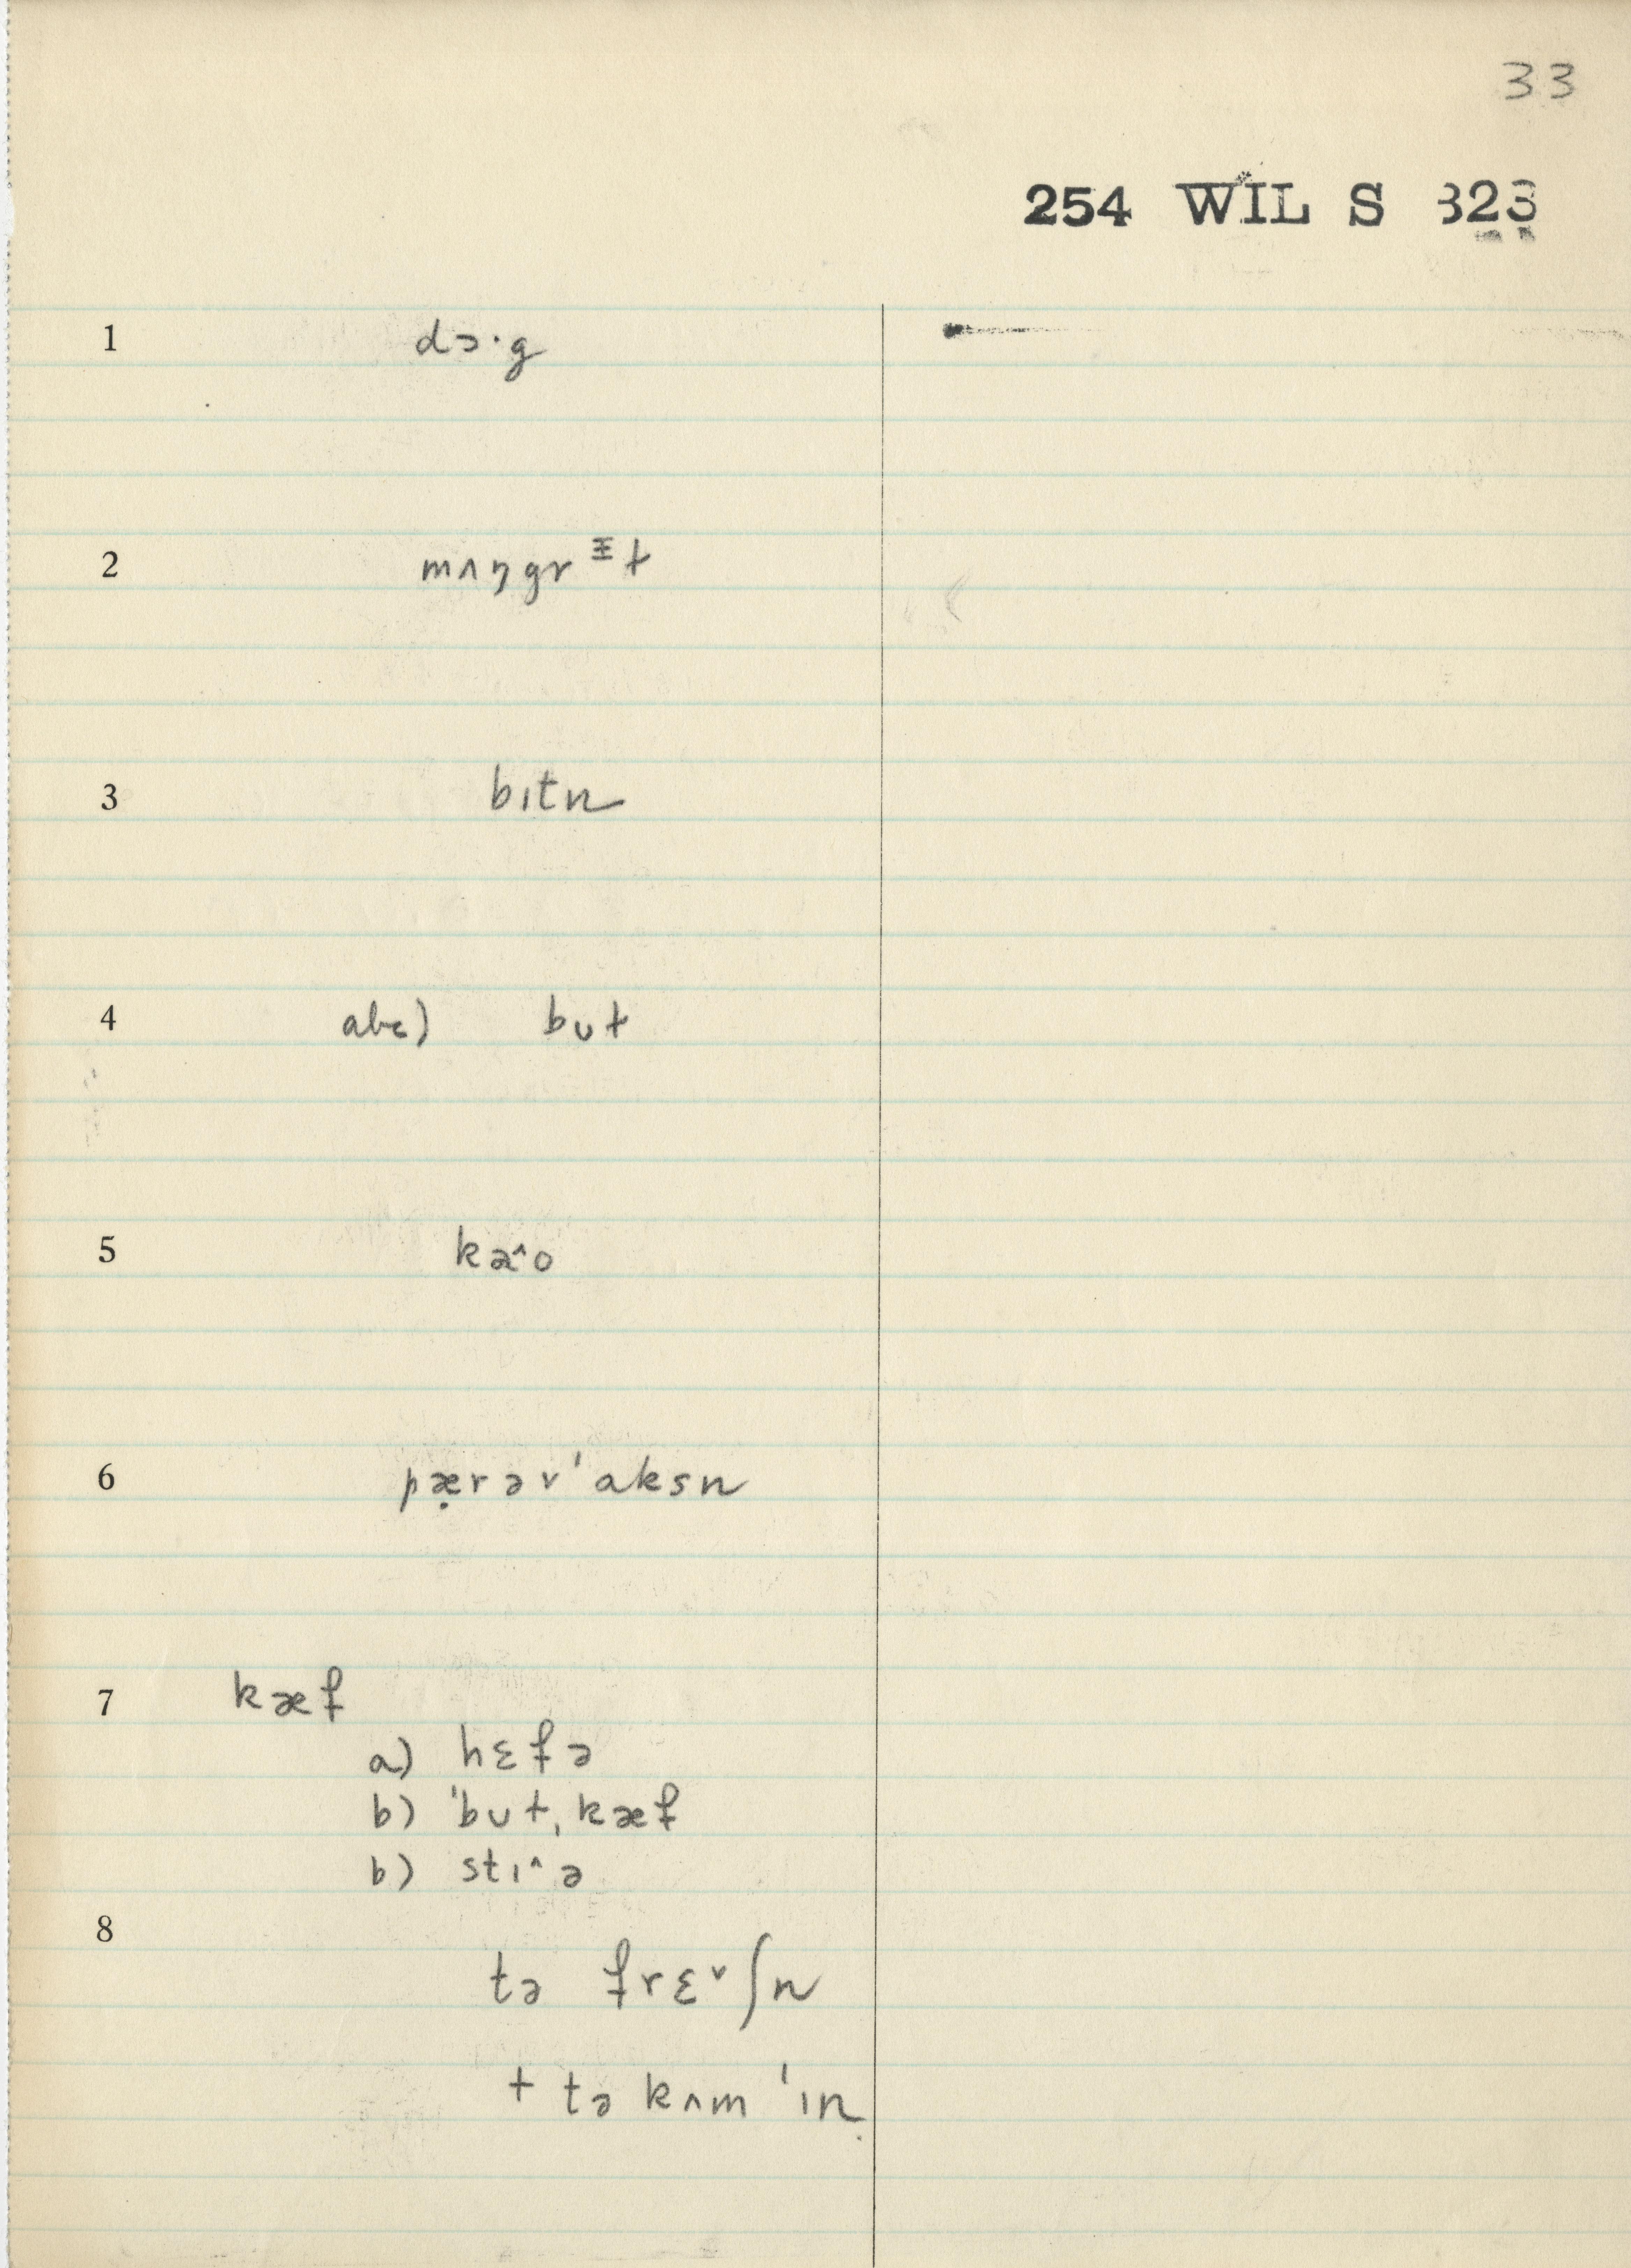 33
254 WIL S 323
1 dɔ·g
2 mʌŋgrᵻt
3 bɪtn
4 abc) bʊt
5 kæ^o
6 pæ̣rəv'aksn
7 kæf
a) hɛfə
b) 'bʊt, kæf
b) stɪ^ə
8
tə frɛᵛʃn
+ tə kʌm 'ɪn